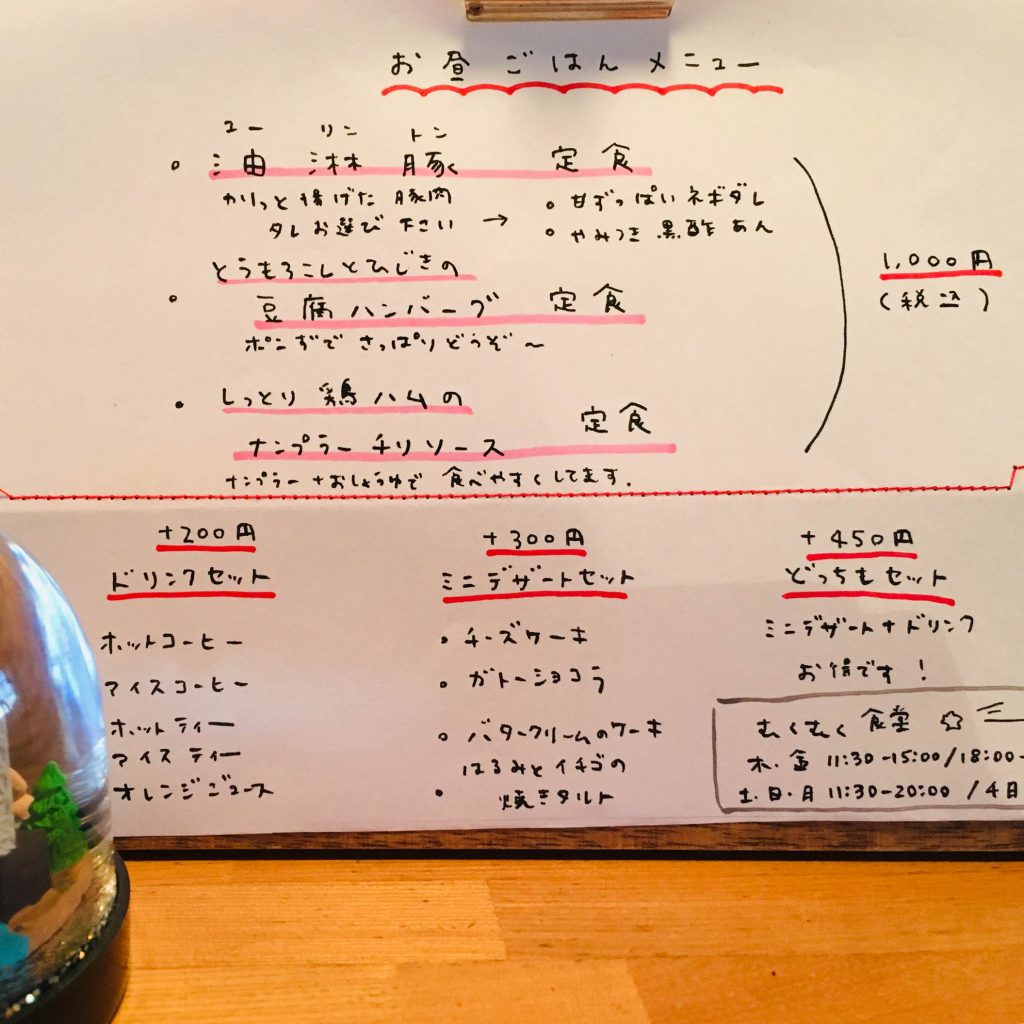 お昼ごはんメニュー
ユー リン トン
・油淋豚 定食
かりっと揚げた豚肉
タレお選び下さい →
・甘ずっぱいネギダレ
・やみつき黒酢あん
とうもろこしとひじきの
・豆腐ハンバーグ 定食
ポンずでさっぱりどうぞ～
・しっとり鶏ハムの
ナンプラーチリソース 定食
ナンプラー+おしょうゆで食べやすくしてます.
1,000円
(税込)
+200円
ドリンクセット
ホットコーヒー
アイスコーヒー
ホットティー
アイスティー
オレンジジュース
+300円
ミニデザートセット
・チーズケーキ
・ガトーショコラ
・バタークリームのケーキ
はるみとイチゴの
・焼きタルト
+450円
どっちもセット
ミニデザート+ドリンク
お得です!
むくむく食堂☆
木・金 11:30-15:00/18:00-
土・日・月 11:30-20:00 /4日